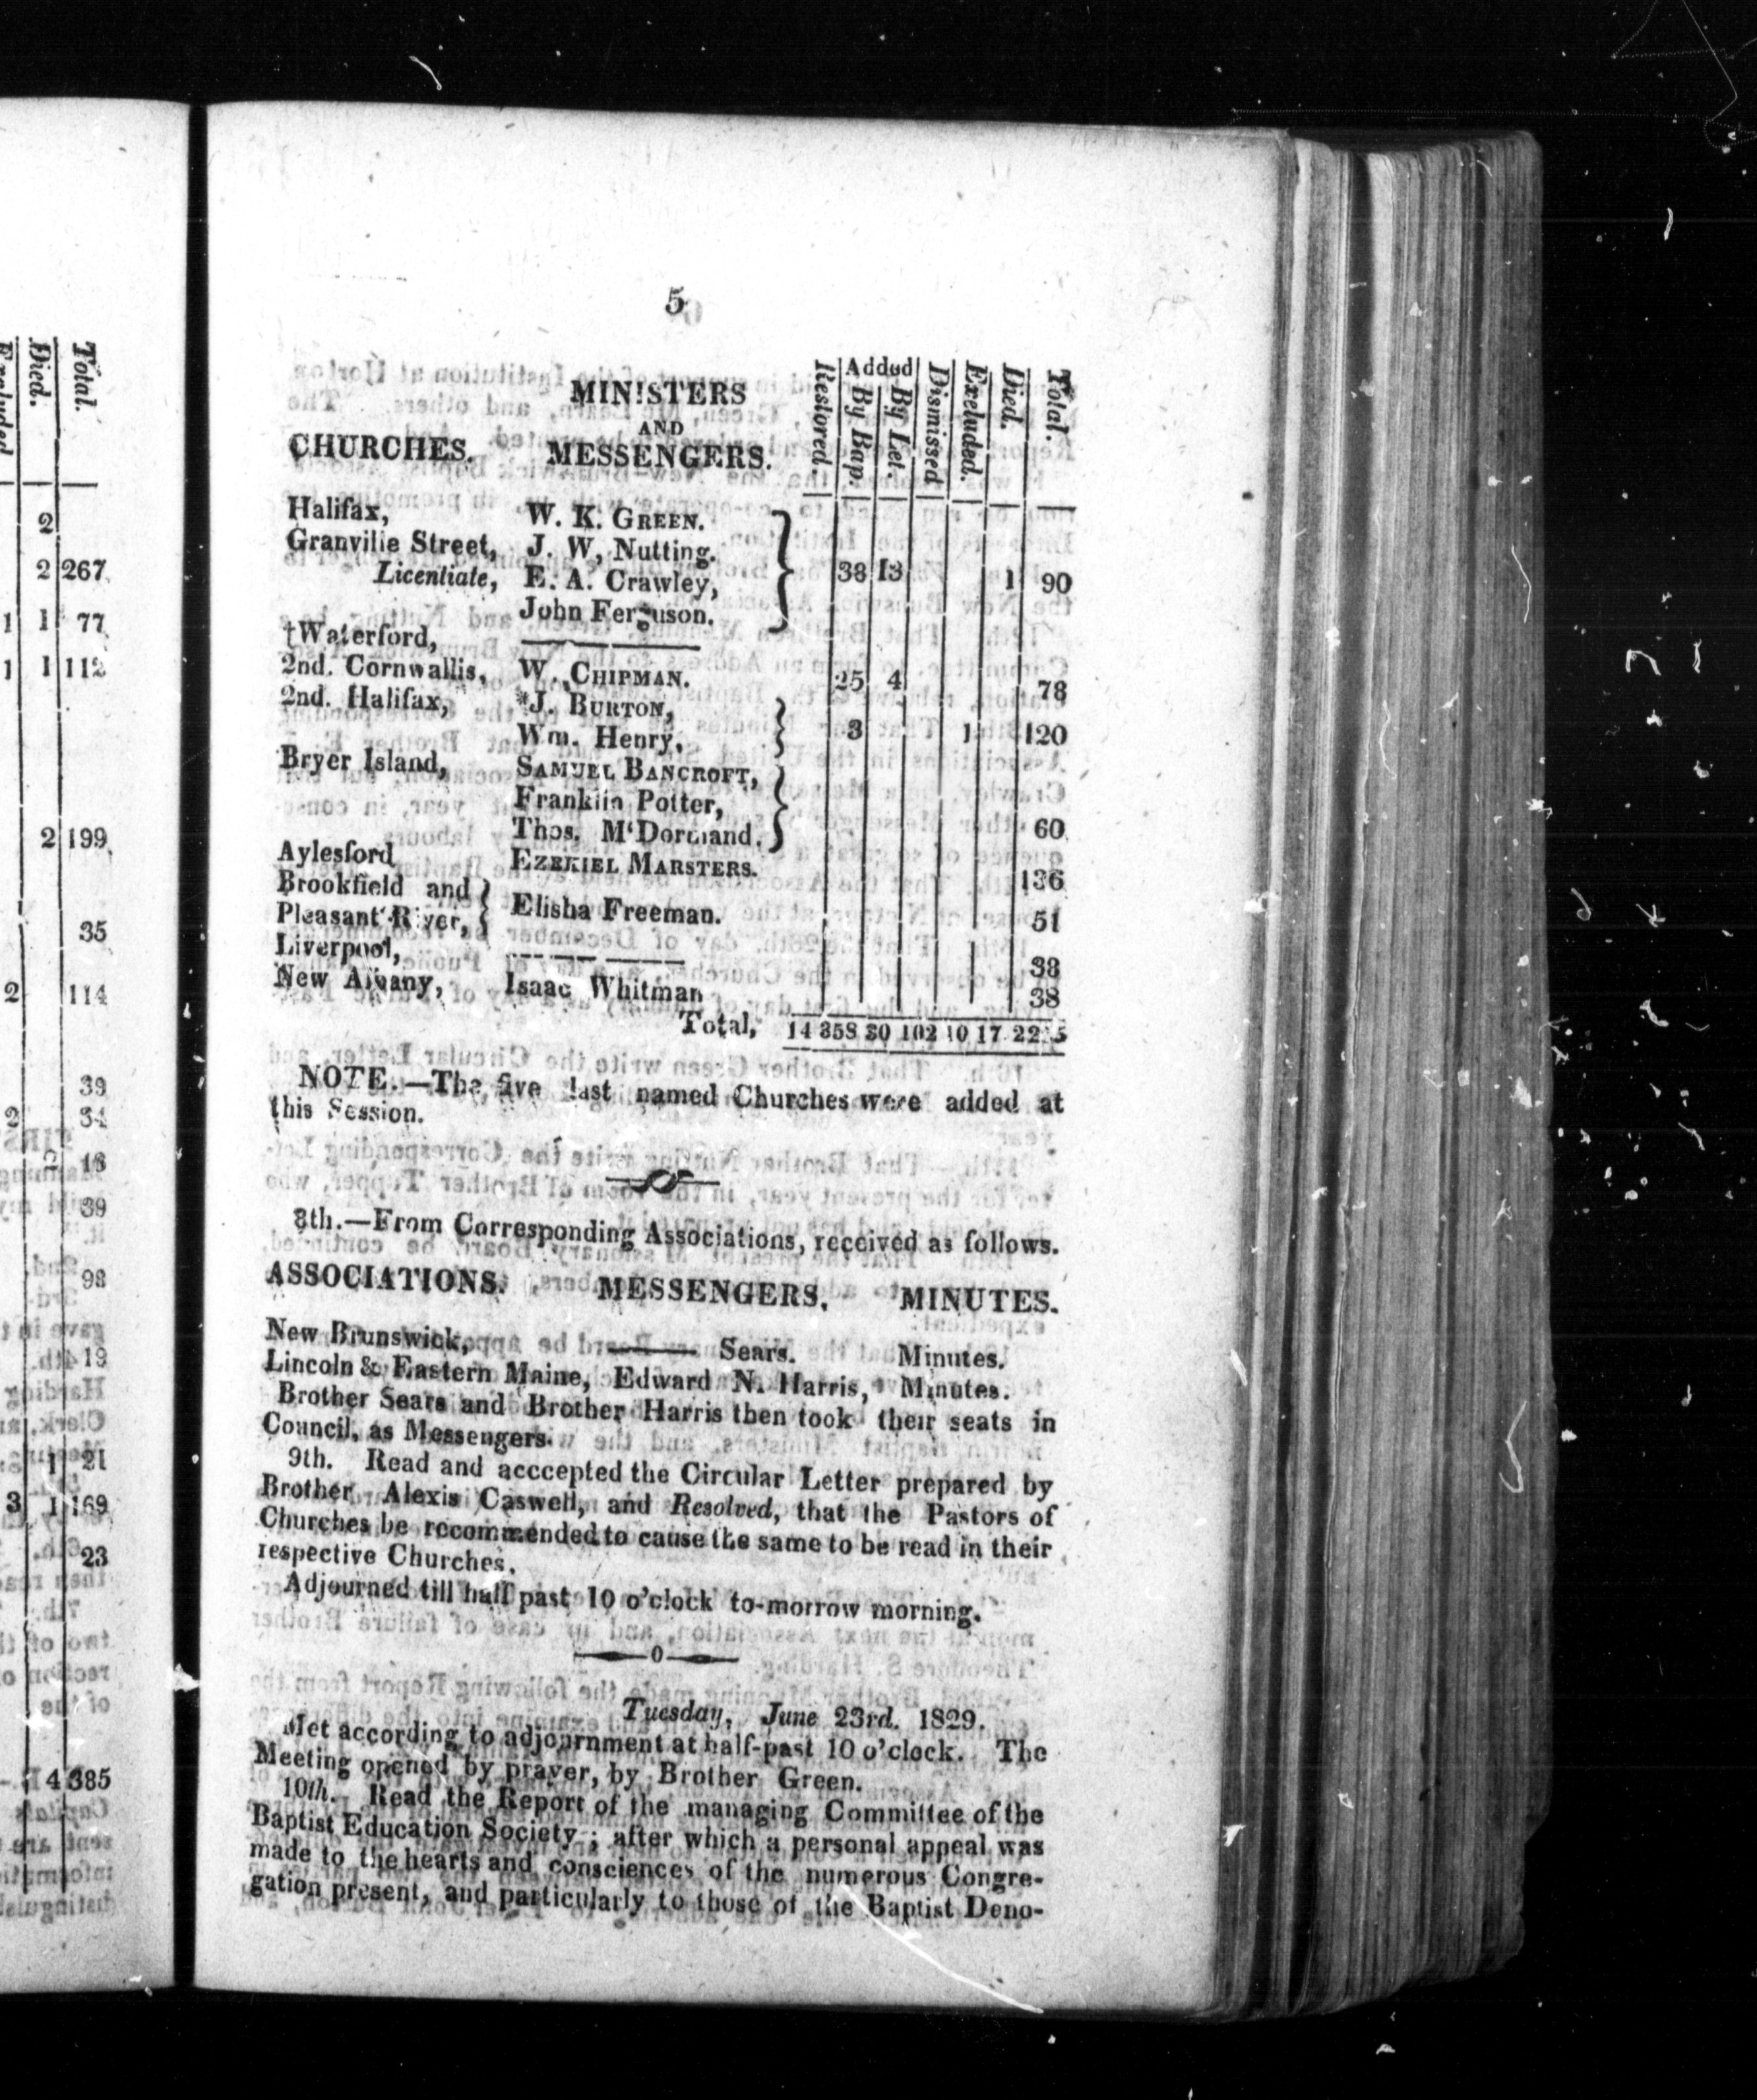 Excluded.
Died.
Total.
2
2 267
1 1 77
1 1 112
2 199
35
2 114
39
2 34
18
39
98
19
1 21
3 1 169
23
4 385
5
MINISTERS
AND
CHURCHES. MESSENGERS.
Restored.
Added
By Bap.
By Let.
Dismissed
Excluded.
Died.
Total.
Halifax, W. K. GREEN.
Granville Street, J. W, Nutting.
Licentiate, E. A. Crawley, 38 13 1 90
John Ferguson.
†Waterford,
2nd. Cornwallis, W. CHIPMAN. 25 4 78
2nd. Halifax, *J. BURTON,
Wm. Henry, 3 1 120
Bryer Island, SAMUEL BANCROFT,
Franklin Potter,
Thos. M'Dormand. 60
Aylesford EZEKIEL MARSTERS. 136
Brookfield and
Pleasant River, Elisha Freeman. 51
Liverpool, 38
New Albany, Isaac Whitman 38
Total, 14 358 30 102 10 17 22
NOTE.—The five last named Churches were added at
this Session.
8th.—From Corresponding Associations, received as follows.
ASSOCIATIONS. MESSENGERS. MINUTES.
New Brunswick, ——— Sears. Minutes.
Lincoln & Eastern Maine, Edward N. Harris, Minutes.
Brother Sears and Brother Harris then took their seats in
Council, as Messengers.
9th. Read and acccepted the Circular Letter prepared by
Brother Alexis Caswell, and Resolved, that the Pastors of
Churches be recommended to cause the same to be read in their
respective Churches.
Adjourned till half past 10 o'clock to-morrow morning.
Tuesday, June 23rd. 1829.
Met according to adjournment at half-past 10 o'clock. The
Meeting opened by prayer, by Brother Green.
10th. Read the Report of the managing Committee of the
Baptist Education Society; after which a personal appeal was
made to the hearts and consciences of the numerous Congre-
gation present, and particularly to those of the Baptist Deno-